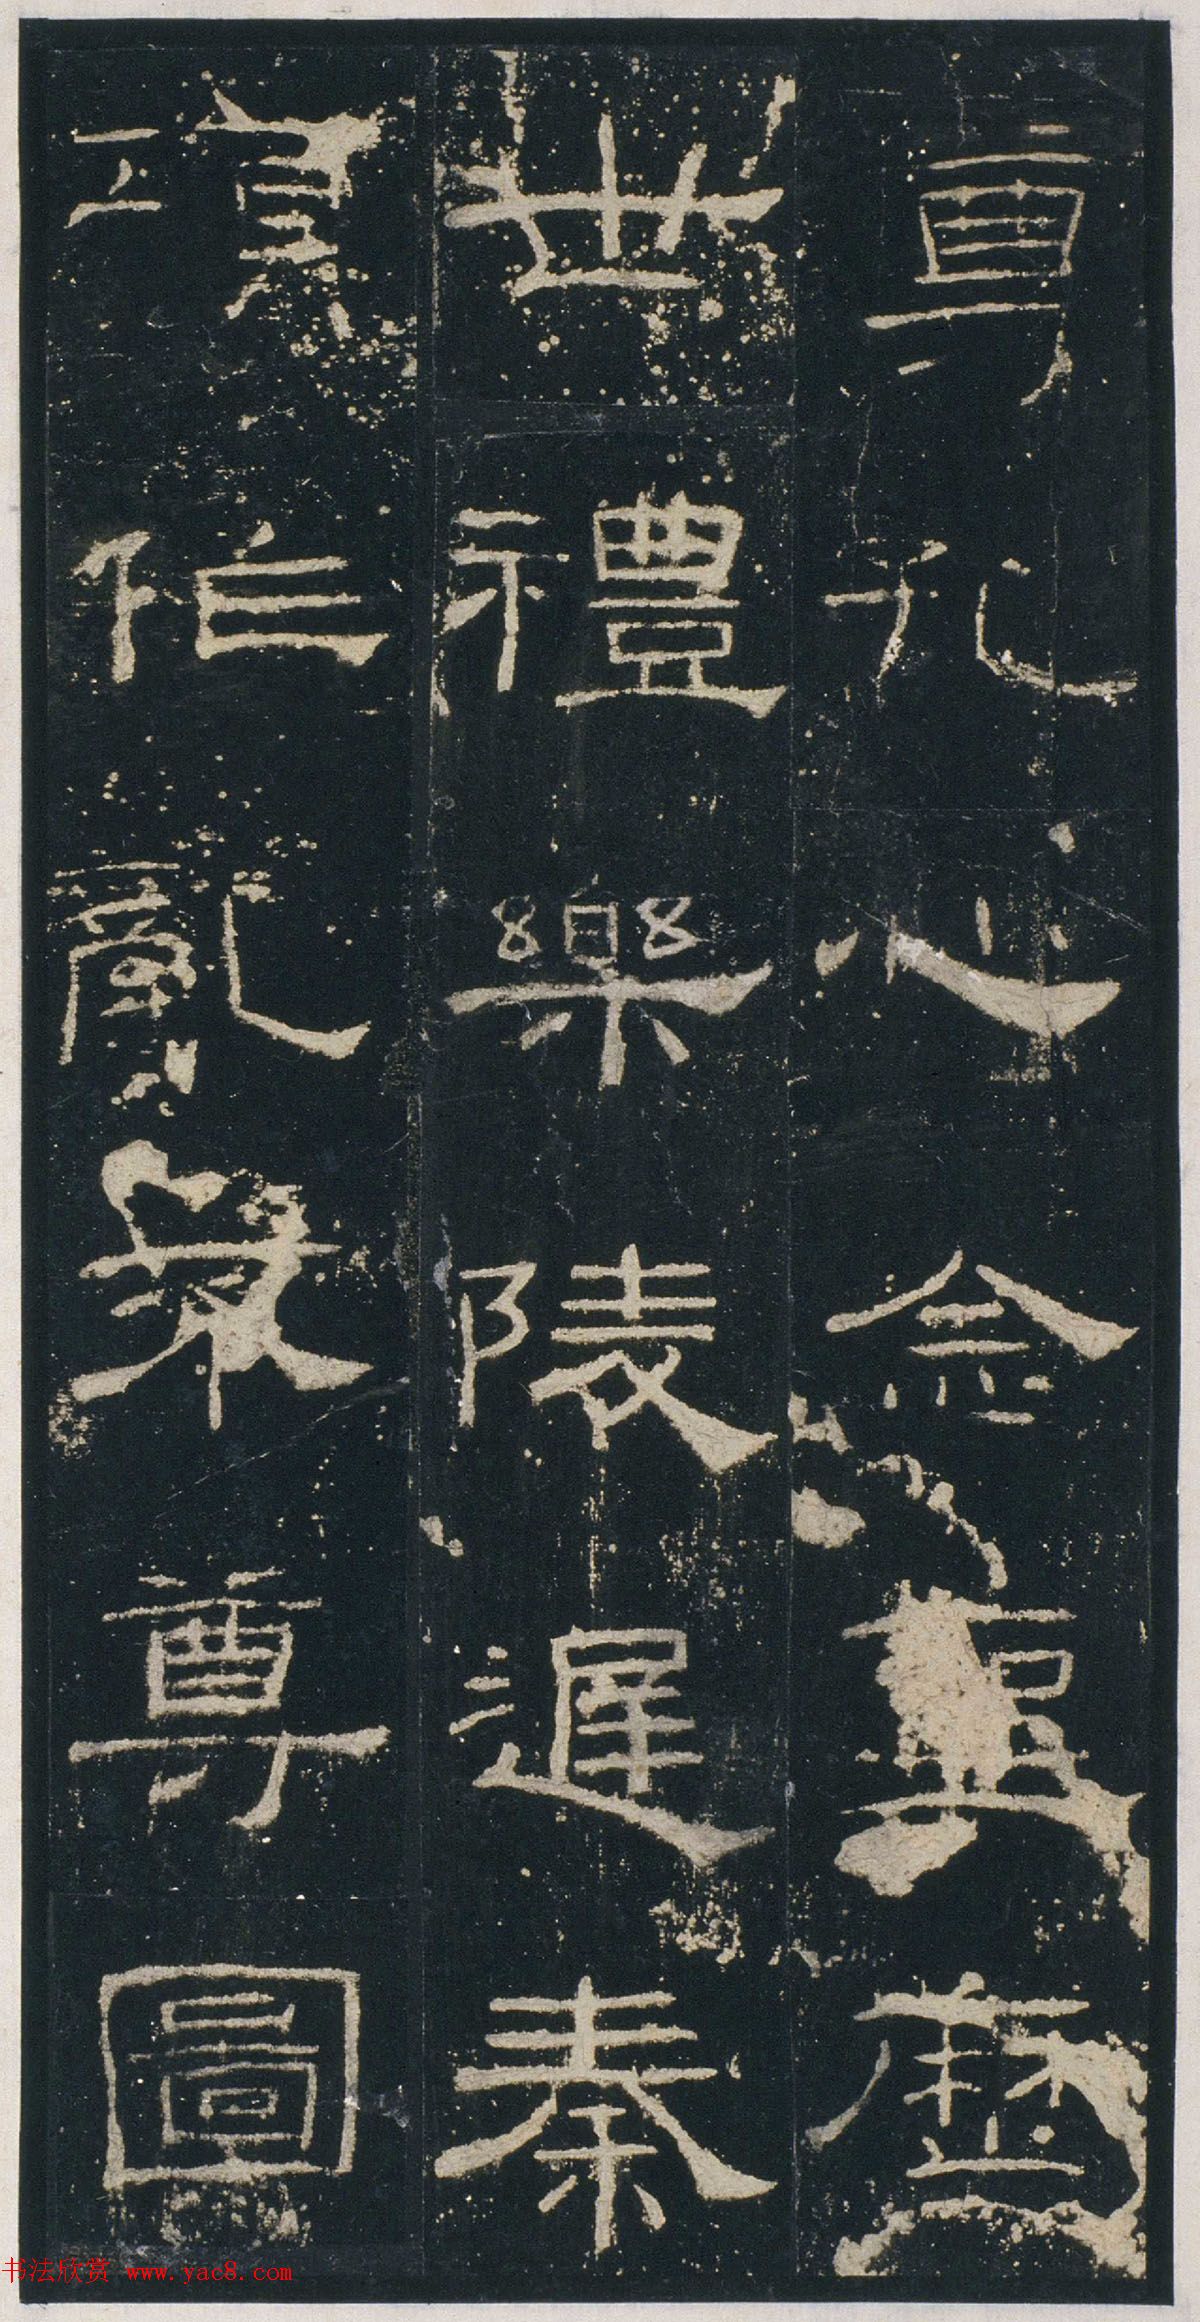 尊孔心念聖歷
世禮樂陵遲秦
項作亂不尊圖
书法欣赏 www.yac8.com